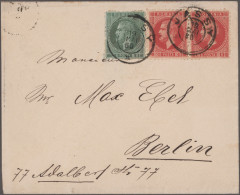 JASSY
Monsieur
Max Ebel
Berlin
77 Adalbert Str 77